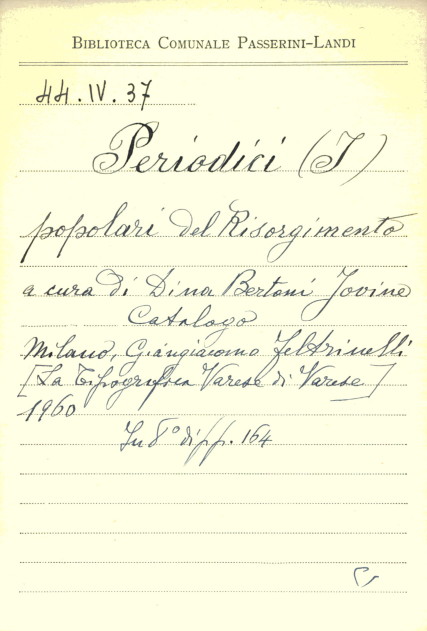 BIBLIOTECA COMUNALE PASSERINI-LANDI
44.IV.37
Periodici (I)
popolari del Risorgimento
a cura di Dina Bertoni Jovine
Catalogo
Milano, Giangiacomo Feltrinelli
[La Tipografica Varese di Varese]
1960
In 8° di pp. 164